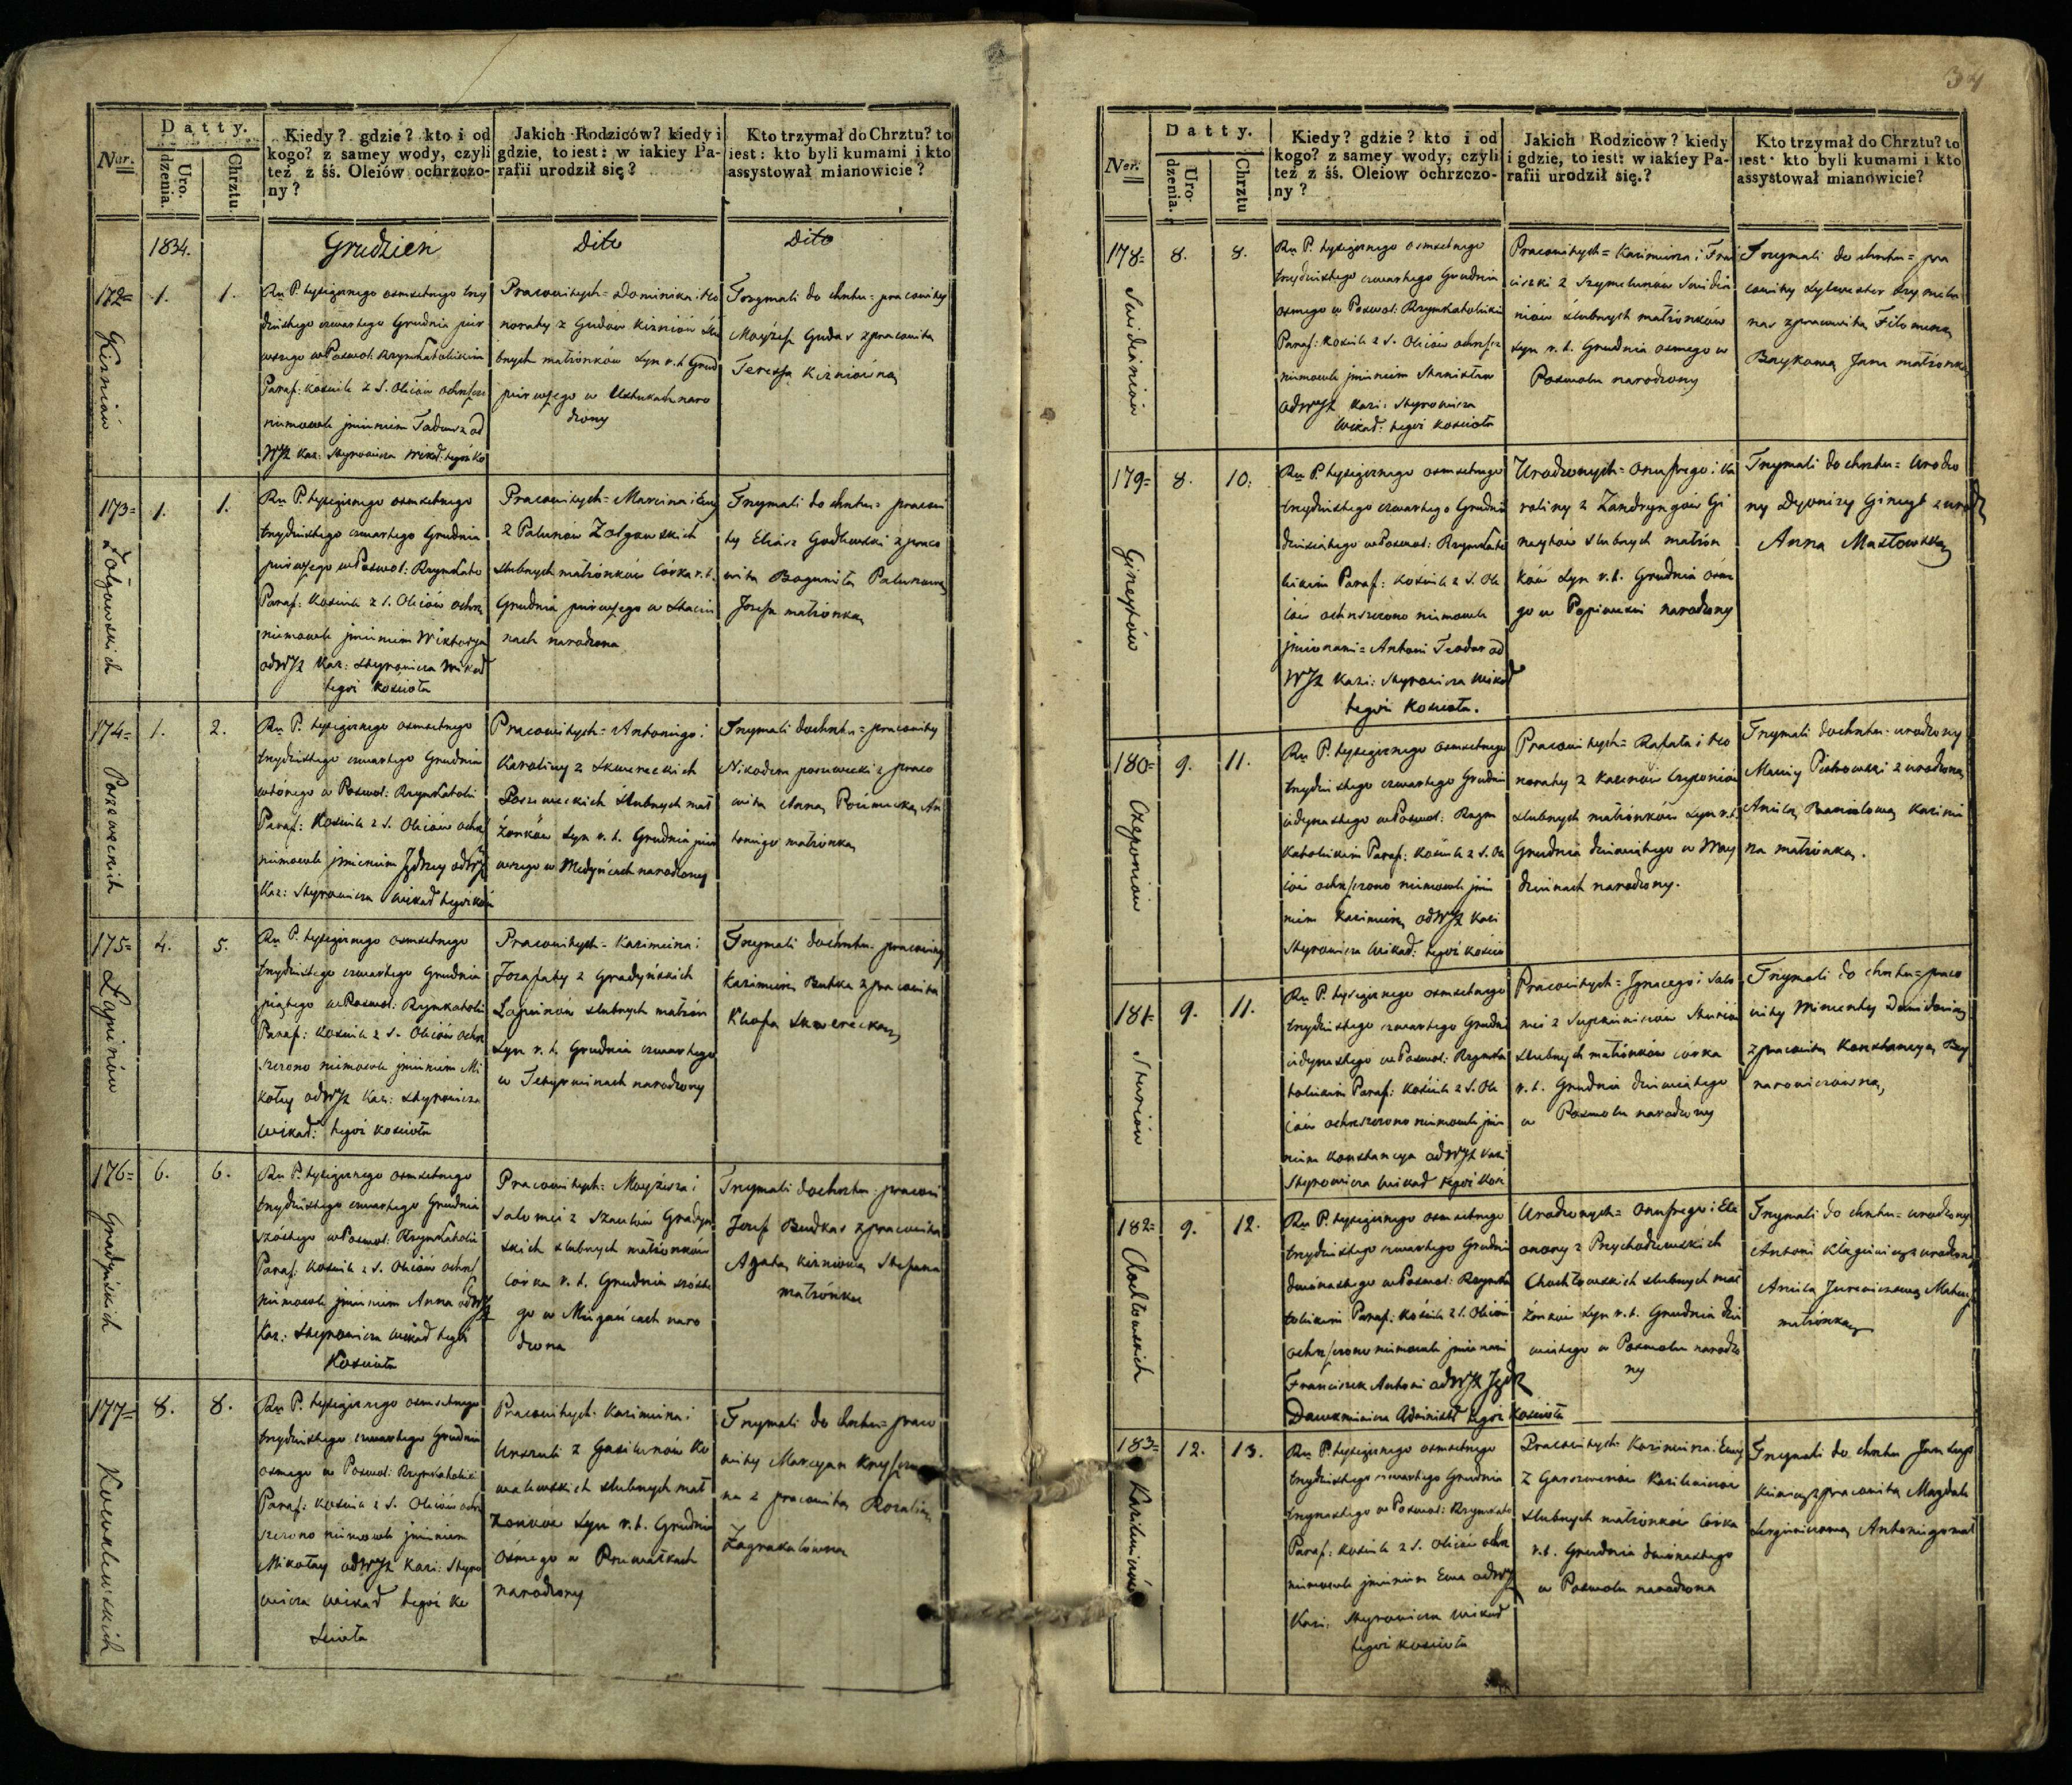 Ner.
Datty.
Uro-
dzenia.
Chrztu.
Kiedy? gdzie? kto i od
kogo? z samey wody, czyli
też z śś. Oleiów ochrzczo-
ny?
Jakich Rodziców? kiedy i
gdzie, to iest: w iakiey Pa-
rafii urodził się?
Kto trzymał do Chrztu? to
iest: kto byli kumami i kto
assystował mianowicie?
1834.
Grudzień
Dito
Dito
172=
Kizniów
1.
1.
Ru P. tysiącznego osmsetnego trzy
dziestego czwartego Grudnia pier
wszego w Poswol: RzymKatolickim
Paraf: Kościele z S. Oleiów ochrszczo
niemowle jmieniem Tadeusz od
WJX Kaz: Skyrowicza Wikar: tegóż Ko
Pracowitych = Dominika i Ho
noraty z Gudów Kizniów Ślu
bnych małżonków Syn r.t. Grud
pierwszego w Ustukach naro
dzony
Trzymali do chrztu = pracowity
Mayżesz Gudas z pracowitą
Teressą Kizniówną
173=
Żołgowskich
1.
1.
Ru P. tysiącznego osmsetnego
trzydziestego czwartego Grudnia
pierwszego w Poswol: RzymKato
Paraf: Kościele z S. Oleiów ochrz
niemowle jmieniem Wiktorya
od WJX Kaz: Skyrowicza Wikar
tegóż Kościoła
Pracowitych = Marcina i Ewy
z Palunow Żołgowskich
slubnych małżonków Córka r.t.
Grudnia pierwszego w
nach narodzona
Trzymali do chrztu = pracowi
ty Eliasz Godlewski z praco
witą Bogumiłą Palunową
Jozefa małżonką
174=
Poszweckich
1.
2.
Ru P. tysiącznego osmsetnego
trzydziestego czwartego Grudnia
wtórego w Poswol: RzymKatoli
Paraf: Kościele z S. Oleiów ochrz
niemowle jmieniem Jędrzey od WJX
Kaz: Skyrowicza Wikar tegóż Koś
Pracowitych = Antoniego i
Karoliny z Skwereckich
Poszweckich Ślubnych mał
żonków Syn r.t. Grudnia pier
wszego w Medyńcach narodzony
Trzymali do chrztu = pracowity
Nikodem poszwecki z praco
witą Anną An
toniego małżonką
175=
Łapinów
4.
5.
Ru P. tysiącznego osmsetnego
trzydziestego czwartego Grudnia
piątego w Poswol: RzymKatoli
Paraf: Kościele z S. Oleiów ochrz
szczono niemowle jmieniem Mi
kołay od WJX Kaz: Skyrowicza
Wikar: tegóż Kościoła
Pracowitych = Kazimierza i
Jozafaty z Gradyńskich
Łapinów slubnych małżon
Syn r.t. Grudnia czwartego
w Tetyrwinach narodzony
Trzymali do chrztu = pracowity
Kazimierz Butka z pracowitą
Skwerecką
176=
Gradyńskich
6.
6.
Ru P. tysiącznego osmsetnego
trzydziestego czwartego Grudnia
szóstego w Poswol: RzymKatolic
Paraf: Kościele z S. Oleiów ochrz
niemowle jmieniem Anna od WJX
Kaz: Skyrowicza Wikar tegóż
Kościoła
Pracowitych = Mayżesza i
Salomei z Szaulów Gradyn
skich slubnych małżonków
Córka r.t. Grudnia szóste
go w Migańcach naro
dzona
Trzymali do chrztu = pracowi
Jozef Budkas z pracowitą
Agatą Kizniową Stefana
małżonka
177=
Kowalewskich
8.
8.
Ru P. tysiącznego osmsetnego
trzydziestego czwartego Grudnia
osmego w Poswol: RzymKatolic
Paraf: Kościele z S. Oleiów ochrz
szczono niemowle jmieniem
Mikołay od WJX Kazi: Skyro
wicza Wikar tegóż Ko
scioła
Pracowitych = Kazimierza i
Urszuli z Gasiunów Ko
walewskich slubnych mał
żonków Syn r.t. Grudnia
Osmego w Rumatkach
narodzony
Trzymali do chrztu = praco
wity Marcyan
na z pracowitą Rozalią
Zagrakalówną
34
Ner.
Datty.
Uro-
dzenia.
Chrztu
Kiedy? gdzie? kto i od
kogo? z samey wody, czyli
też z śś. Oleiow ochrzczo-
ny?
Jakich Rodziców? kiedy
i gdzie, to iest: w iakiey Pa-
rafii urodził się.?
Kto trzymał do Chrztu? to
iest: kto byli kumami i kto
assystował mianowicie?
178=
Swidzieniów
8.
8.
Ru P. tysiącznego osmsetnego
trzydziestego czwartego Grudnia
osmego w Poswol: RzymKatolickim
Paraf: Kościele z S. Oleiów ochrszcz
niemowle jmieniem Stanisław
od WJX Kazi: Skyrowicza
Wikar: tegóż Kościoła
Pracowitych = Kazimierza i Fran
ciszki z Szymelunów Swidzi
niów slubnych małżonków
Syn r.t. Grudnia osmego w
Poswolu narodzony
Trzymali do chrztu = pra
cowity Sylwester Szymelu
nas z pracowitą Filomeną
Baykową Jana małżonką
179=
Gineytów
8.
10.
Ru P. tysiącznego osmsetnego
trzydziestego czwartego Grudnia
dziesiątego w Poswol: RzymKato
lickim Paraf: Kościele z S. Ole
iów ochrszczono niemowle
jmionami = Antoni Teodor od
WJX Kazi: Skyrowicza Wikar
tegóż Kościoła.
Urodzonych = Onufrego i Ka
roliny z Zandryngów Gi
neytów slubnych małżon
ków Syn r.t. Grudnia osm
go w Popiwesiu narodzony
Trzymali do chrztu = Urodzo
ny Dyonizy Gineyt z urodz
Anną Masłowską
180=
Czeponiów
9.
11.
Ru P. tysiącznego osmsetnego
trzydziestego czwartego Grudni
iedynastego w Poswol: Rzym
Katolickim Paraf: Kościele z S. Ole
iów ochrszczono niemowle jmie
niem Kazimierz od WJX Kazi
Skyrowicza Wikar: tegóż Kościo
Pracowitych = Rafała i Ho
noraty z Kazenów Czeponiów
slubnych małżonków Syn r.t.
Grudnia dziewiątego w Way
dzunach narodzony.
Trzymali do chrztu = urodzony
Maciey Piotrowski z urodzoną
Anielą Kazimi
rza małżonką.
181=
Sturiów
9.
11.
Ru P. tysiącznego osmsetnego
trzydziestego czwartego Grudni
iedynastego w Poswol: RzymKa
tolickim Paraf: Kościele z S. Ole
iów ochrszczono niemowle jmie
niem Konstancya od WJX Kazi
Skyrowicza Wikar tegóż Kość
Pracowitych = Jgnacego i Salo
mei z Sturiów
slubnych małżonków Córka
r.t. Grudnia dziewiątego
w Poswolu narodzony
Trzymali do chrztu = praco
wity Wincenty
z pracowitą Konstancyą Bey
narowiczówną
182=
Chodtowskich
9.
12.
Ru P. tysiącznego osmsetnego
trzydziestego czwartego Grudni
dwónastego w Poswol: RzymKa
tolickim Paraf: Kościele z S. Oleiów
ochrszczono niemowle jmionami
Franciszek Antoni od WJX Jędrz
Daukmiewicza Administ tegóż Kościoła
Urodzonych = Onufrego i Ele
onory z Przychodzewskich
Chodtowskich slubnych mał
żonków Syn r.t. Grudnia dzie
wiątego w Poswolu narodzo
ny
Trzymali do chrztu = urodzony
Antoni z urodzoną
Anielą Jurewiczową Mateusz
małżonką
183=
Kasileniów
12.
13.
Ru P. tysiącznego osmsetnego
trzydziestego czwartego Grudnia
trzynastego w Poswol: RzymKato
Paraf: Kościele z S. Oleiów ochrz
niemowle jmieniem Ewa od WJX
Kazi: Skyrowicza Wikar
tegóż Kościoła
Pracowitych Kazimierza i Ewy
z Garszwenów Kasileniów
slubnych małżonków Córka
r.t. Grudnia dwónastego
w Poswolu narodzona
Trzymali do chrztu Jan
z pracowitą Magdale
Antoniego mał